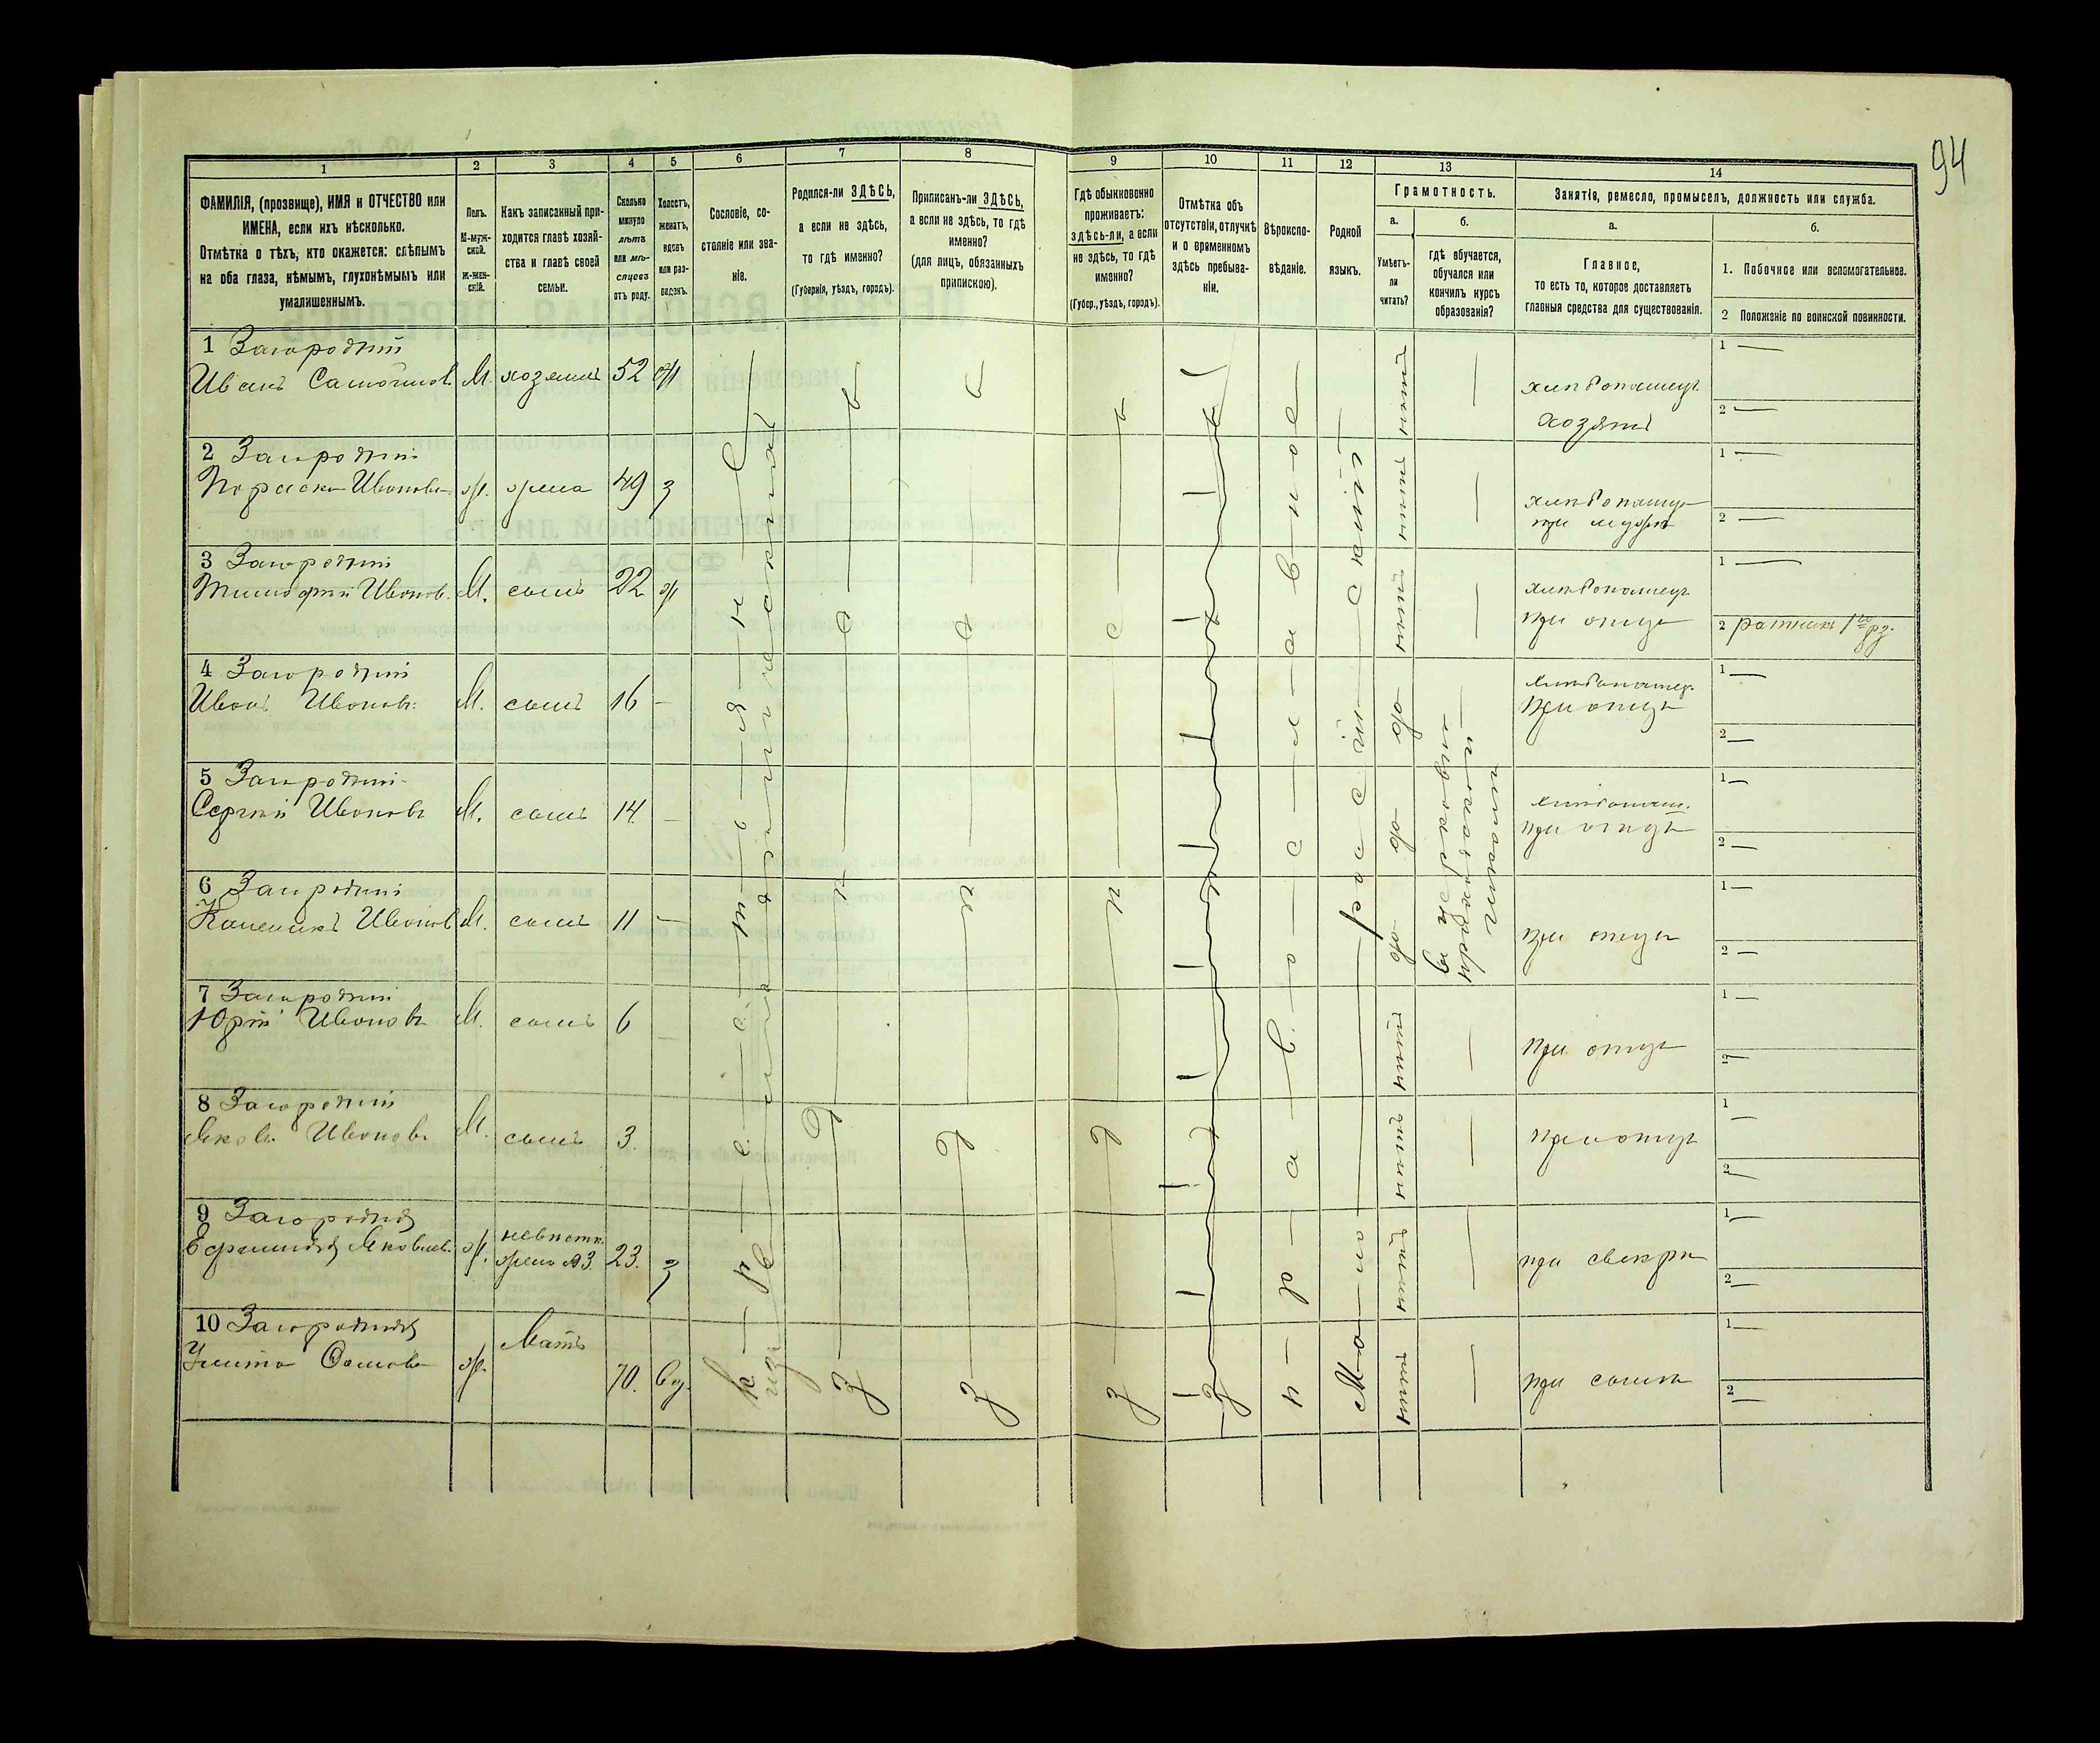 94
1
2
3
4
5
6
7
8
9
10
11
12
13
14
ФАМИЛІЯ, (прозвище), ИМЯ и ОТЧЕСТВО или
ИМЕНА, если ихъ нѣсколько.
Отмѣтка о тѣхъ, кто окажется: слѣпымъ
на оба глаза, нѣмымъ, глухонѣмымъ или
умалишеннымъ.
Полъ.
М-муж-
ской.
ж-жен-
скій.
Какъ записанный при-
ходится главѣ хозяй-
ства и главѣ своей
семьи.
Сколько
минуло
лѣтъ
или мѣ-
сяцевъ
отъ роду.
Холостъ,
женатъ,
вдовъ
или раз-
веденъ.
Сословіе, со-
стояніе или зва-
ніе.
Родился-ли ЗДѢСЬ,
а если не здѣсь,
то гдѣ именно?
(Губернія, уѣздъ, городъ).
Приписанъ-ли ЗДѢСЬ,
а если не здѣсь, то гдѣ
именно?
(для лицъ, обязанныхъ
припискою).
Гдѣ обыкновенно
проживаетъ:
здѣсь-ли, а если
не здѣсь, то гдѣ
именно?
(Губер., уѣздъ, городъ).
Отмѣтка объ
отсутствіи, отлучкѣ
и о временномъ
здѣсь пребыва-
ніи.
Вѣроиспо-
вѣданіе.
Родной
языкъ.
Грамотность.
а.
Умѣетъ-
ли
читать?
б.
гдѣ обучается,
обучался или
кончилъ курсъ
образованія?
Занятія, ремесло, промыселъ, должность или служба.
а.
Главное,
то есть то, которое доставляетъ
главныя средства для существованія.
б.
1. Побочное или вспомогательное.
2 Положеніе по воинской повинности.
1 Загородній
Иванъ М. хозяинъ 52 ж нѣтъ — хлѣбопашец
хозяинъ
1 —
2 —
2 Загородній
Параска Иванова ж. жена 49 з нѣтъ — хлѣбопашец
при мужѣ
1 —
2 —
3 Загородній
Тимофѣй Иванов. М. сынъ 22 ж нѣтъ — хлѣбопашец
при отцѣ
1 —
2 ратникъ 1го рз.
4 Загородній
Иванъ Ивановъ М. сынъ 16 — да — хлѣбопашец.
при отцѣ
1 —
2 —
5 Загородній
Сергѣй Ивановъ М. сынъ 14. — да хлѣбопаш.
при отцѣ
1 —
2 —
6 Загородній
Ивановъ М. сынъ 11 — да при отцѣ
1 —
2 —
7 Загородній
Юрій Ивановъ М. сынъ 6 — нѣтъ — при отцѣ
1 —
2 —
8 Загородній
Яковъ Ивановъ М. сынъ 3. нѣтъ — при отцѣ
1 —
2 —
9 Загородняя
Яковлев. ж. невѣстк.
жена №3. 23. з нѣтъ — при свекрѣ
1 —
2 —
10 Загородняя
Улита ж. Мать 70. вд. нѣтъ — при сынѣ
1 —
2 —
к—р—е—с—т—ь—я—н—
из
здѣсь
здѣсь
здѣсь
п—р—а—в—о—с—л—а—в—ное
Мало—россійскій
въ церковно
приходской
школѣ